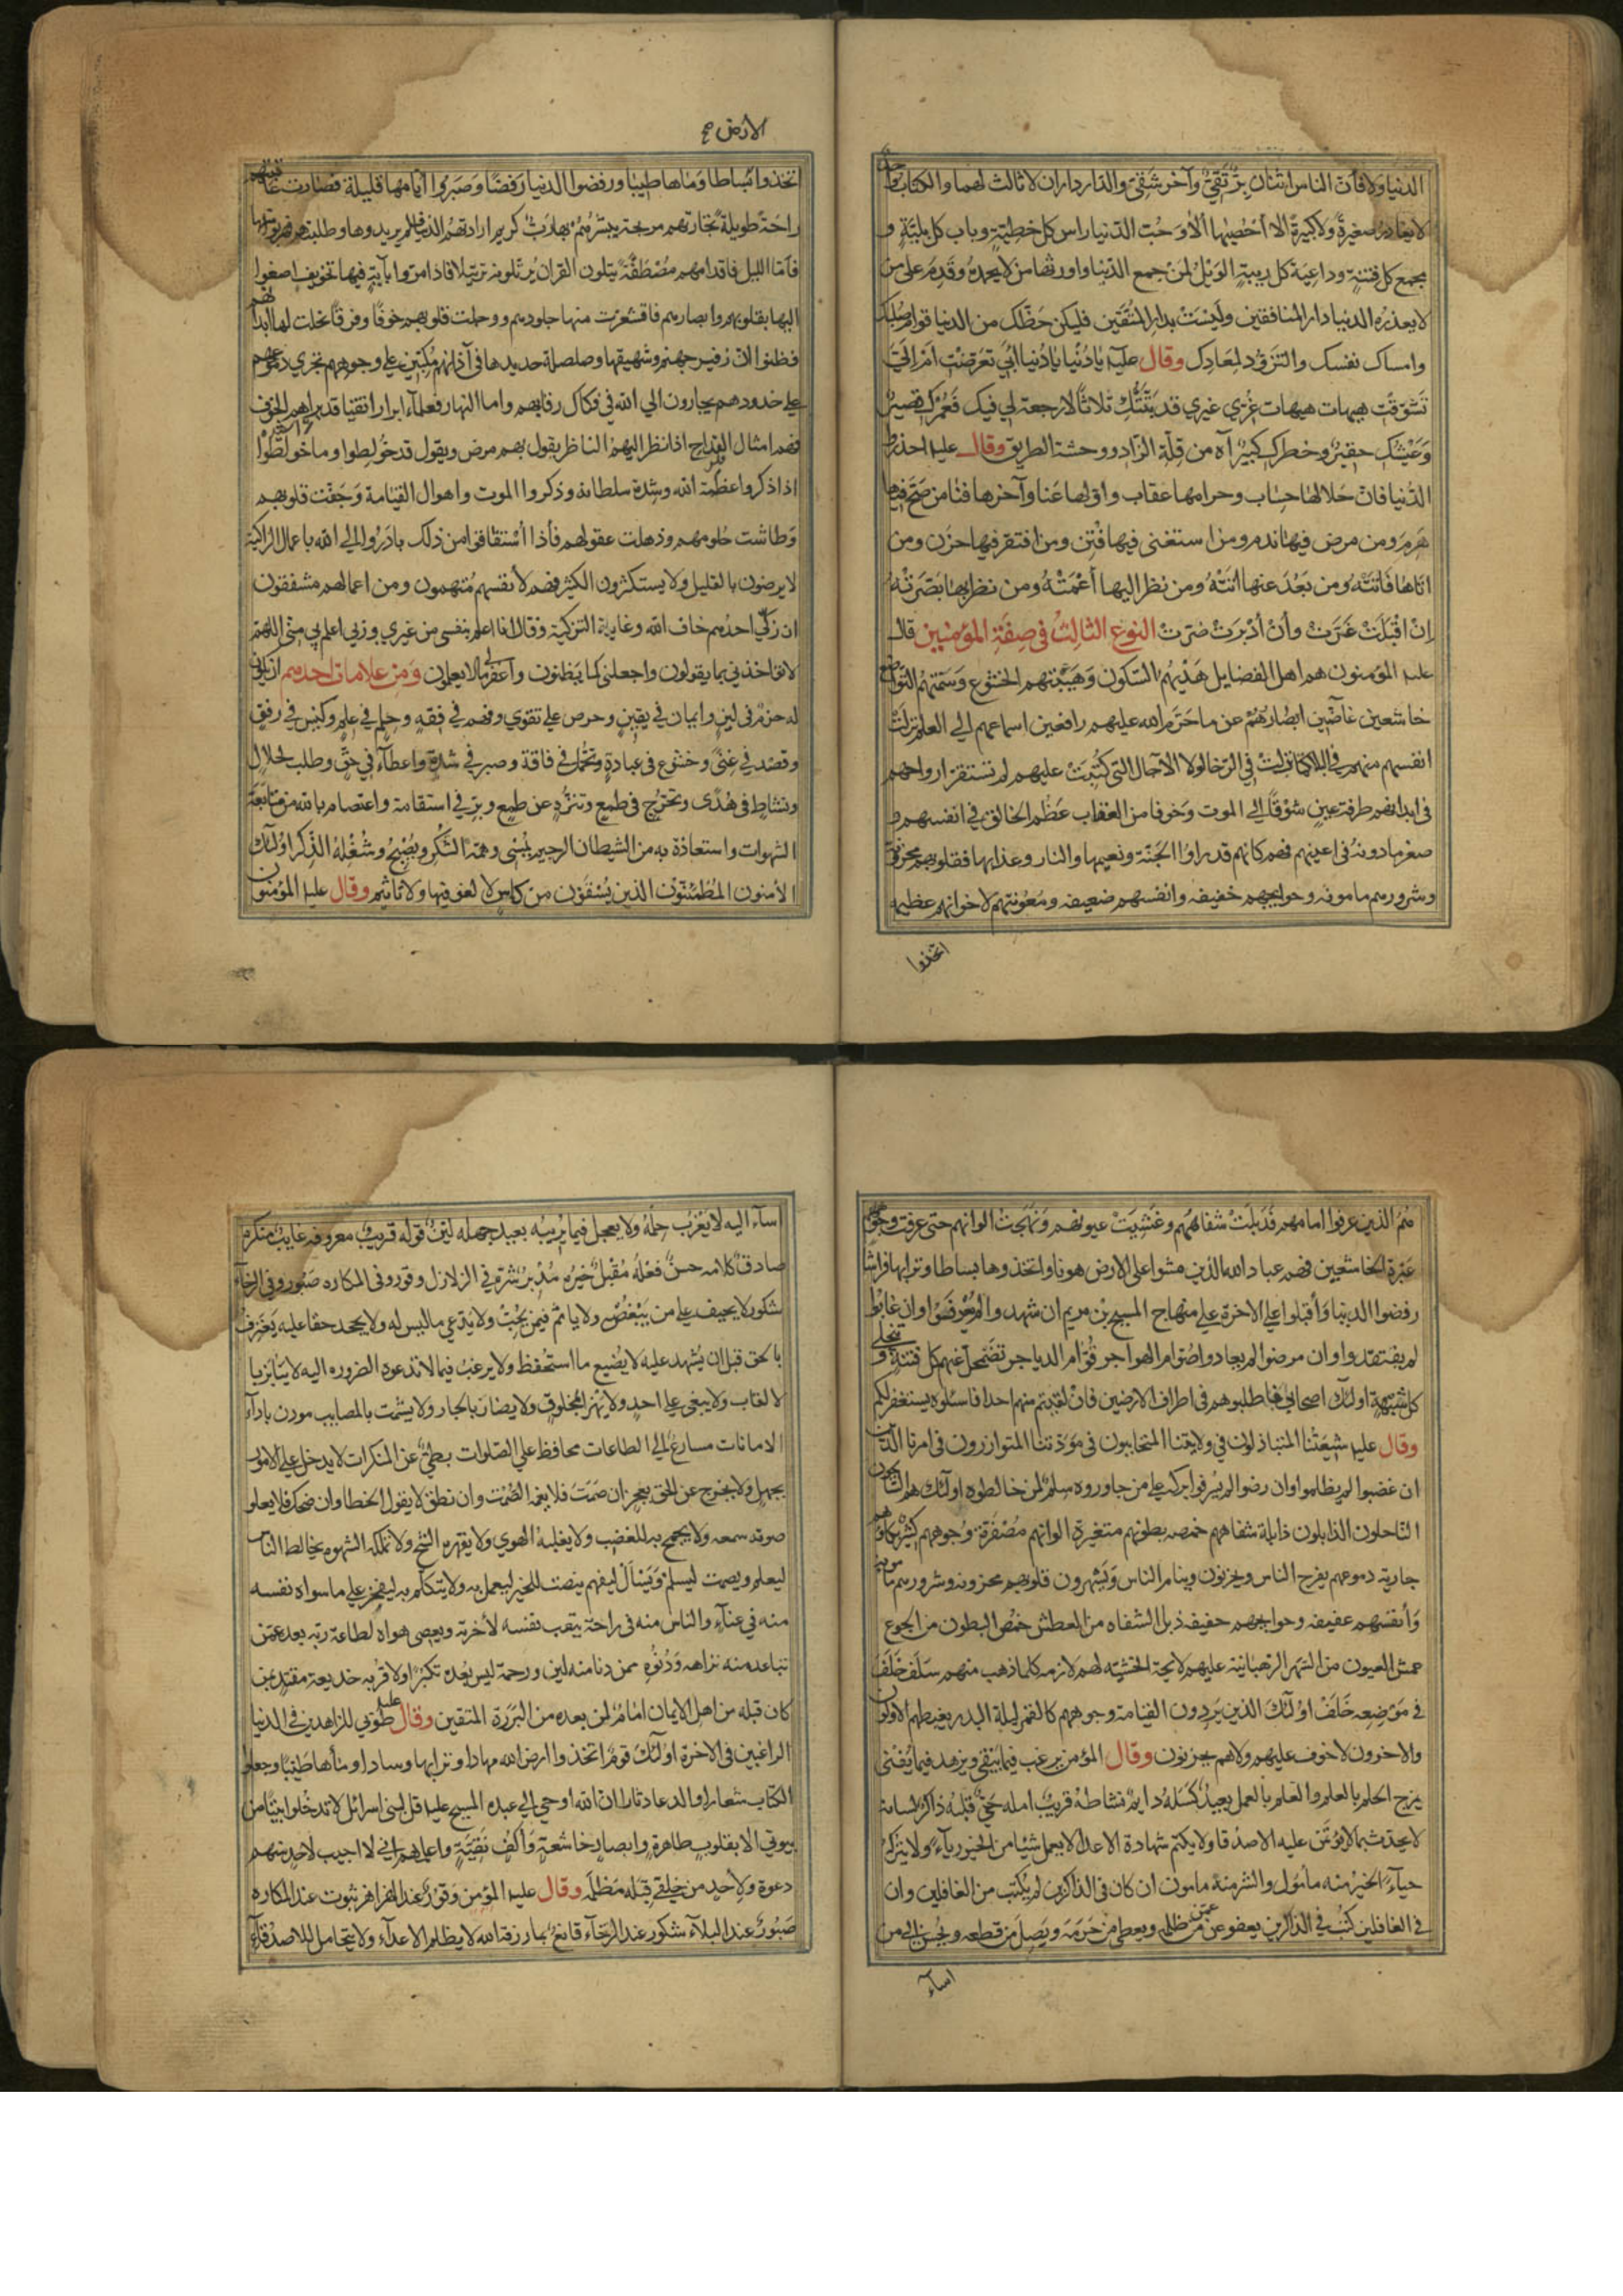 الدنيا ولا فان الناس اثنان برّ تقيّ وآخر شقيّ والدار داران لا ثالث لهما والكتاب واحد
لا يغادر صغيرة ولا كبيرة الا احصيها ألا وحب الدنيا راس كل خطيئة وباب كل بلية و
مجمع كل فتنة وداعية كل ريبة الويل لمن جمع الدنيا واورثها من لا يحمده وقدم على من
لا يعذره الدنيا دار المنافقين وليست بدار المتقين فليكن حظك من الدنيا قوام صلبك
وامساك نفسك والتزود لمعادك وقال عليه يا دنيا يا دنيا ابي تعرضت ام اليّ
تشوقت هيهات هيهات غرّي غيري قد بتتك ثلاثاً لا رجعة لي فيك فعمرك قصير
وعيشك حقير وخطرك كبير آه من قلة الزاد ووحشة الطريق وقال عليه احذروا
الدنيا فان حلالها حساب وحرامها عقاب واولها عنا وآخرها فنا من صح فيها
هرم ومن مرض فيها ندم ومن استغنى فيها فتن ومن افتقر فيها حزن ومن
اتاها فاتته ومن بعد عنها اتته ومن نظر اليها أعمته ومن نظر بها بصرته
إن اقبلت غرّت وأن أدبرت ضرّت النوع الثالث في صفة المؤمنين قال
عليه المؤمنون هم اهل الفضايل هديهم السكون وهيئتهم الخشوع وسمتهم التواضع
خاشعين غاضين ابصارهم عن ما حرم الله عليهم رافعين اسماعهم الي العلم نزلت
انفسهم منهم في البلا كما نزلت في الرخا لولا الآجال التي كتبت عليهم لم تستقر ارواحهم
في ابدانهم طرفة عين شوقاً الي الموت وخوفا من العقاب عظم الخالق في انفسهم و
صغر ما دونه في اعينهم فهم كانهم قد راوا الجنة ونعيمها والنار وعذابها فقلوبهم محزونة
وشرورهم مامونه وحوايجهم خفيفه وانفسهم ضعيفه ومعونتهم لاخوانهم عظيمه
اتخذوا
الارض صح
اتخذوا بساطا وماها طيبا ورفضوا الدنيا رفضا وصبروا اياما قليلة فصارت عاقبتهم
راحة طويلة تجارتهم مربحة يبشرهم بها رب كريم ارادتهم الدنيا فلم يريدوها وطلبتهم فهربوا منها
فأما الليل فاقدامهم مصطفة يتلون القران يرتلونه ترتيلا فاذا مروا بآية فيها تخويف اصغوا
اليها بقلوبهم وابصارهم فاقشعرت منها جلودهم ووجلت قلوبهم خوفاً وفرقاً نحلت لها ابدانهم
فظنوا ان زفير جهنم وشهيقها وصلصلة حديدها في آذانهم مكبين علي وجوههم تجري دموعهم
علي خدودهم يجارون الي الله في فكاك رقابهم واما النهار فعلماء ابرار اتقيا قد براهم الخوف
فهم امثال القداح اذا نظر اليهم الناظر يقول بهم مرض ويقول قد خولطوا وما خولطوا
اذا ذكروا عظمة الله وشدة سلطانه وذكروا الموت واهوال القيامة وجفت قلوبهم
وطاشت حلومهم وذهلت عقولهم فأذا استفاقوا من ذلك بادروا الي الله باعمال الزاكية
لا يرضون بالقليل ولا يستكثرون الكثير فهم لانفسهم متهمون ومن اعمالهم مشفقون
ان زكّي احدهم خاف الله وغاية التزكية وقال انا اعلم بنفسي من غيري وربي اعلم بي مني اللهم
لا تواخذني بما يقولون واجعلني كما يظنون واغفر لي ما لا يعلمون ومن علامات احدهم ان يكون
له حزم في لين وايمان في يقين وحرص علي تقوي وفهم في فقه وحلم في علم وكيس في رفق
وقصد في غنى وخشوع في عبادة وتحمل في فاقة وصبر في شدة واعطاء في حق وطلب لحلال
ونشاط في هدى وتحرج في طمع وتنزه عن طمع وبر في استقامة واعتصام بالله من متابعة
الشهوات واستعاذة به من الشيطان الرجيم يمسي وهمه الشكر ويصبح وشغله الذكر اولئك
الآمنون المطمئنون الذين يسقون من كاس لا لغو فيها ولا تاثيم وقال عليه المؤمنون
هم الذين عرفوا امامهم فذبلت شفاههم وغشيت عيونهم وتهجت الوانهم حتى عرفت وجوههم
غبرة الخاشعين فهم عباد الله الذين مشوا علي الارض هونا واتخذوها بساطا وترابها فراشا
رفضوا الدنيا وأقبلوا علي الاخرة علي منهاج المسيح بن مريم ان شهدوا لم يعرفوا وان غابوا
لم يفتقدوا وان مرضوا لم يعادوا صوام الهواجر قوّام الدياجر تضمحل عنهم كل فتنة و
كل شبهة اولئك اصحابي فاطلبوهم في اطراف الارضين فان لقيتم منهم احدا فاسئلوه يستغفر لكم
وقال عليه شيعتنا المتباذلون في ولايتنا المتحابون في مودتنا المتوازرون في امرنا الذين
ان غضبوا لم يظلموا وان رضوا لم يسرفوا بركة علي من جاوروه سلم لمن خالطوه اولئك هم السايحون
الناحلون الذابلون ذابلة شفاههم خمصه بطونهم متغيرة الوانهم مصفرة وجوههم كثير بكاؤهم
جارية دموعهم يفرح الناس ويحزنون وينام الناس ويسهرون قلوبهم محزونه وشرورهم مامونه
وأنفسهم عفيفه وحوايجهم خفيفه ذبل الشفاه من العطش خمص البطون من الجوع
عمش العيون من السهر الرهبانية عليهم لايحة الخشيه لهم لازمه كلما ذهب منهم سلف خلف
في موضعه خلف اولئك الذين يردون القيامة وجوههم كالقمر ليلة البدر يغبطهم الاولون
والاخرون لا خوف عليهم ولا هم يحزنون وقال المؤمن يرغب فيما يبقي ويزهد فيما يفنى
يمزج الحلم بالعلم والعلم بالعمل بعيد كسله دايم نشاطه قريب امله حيّ قلبه ذاكر لسانه
لا يحدث بما لا يؤتمن عليه الاصدقا ولا يكتم شهادة الاعدا لا يعمل شيئا من الخير رياء ولا يتركه
حياء الخير منه مأمول والشر منه مامون ان كان في الذاكرين لم يكتب من الغافلين وان
في الغافلين كتب في الذاكرين يعفو عن من ظلمه ويعطي من حرمه ويصل من قطعه ويحسن الي من
اساء
اساء اليه لا يعزب حلمه ولا يعجل فيما يريبه بعيد جهله لين قوله قريب معروفه غايب منكره
صادق كلامه حسن فعله مقبل خيره مدبر شره في الزلازل وقور وفي المكاره صبور وفي الرخاء
شكور لا يحيف علي من يبغضه ولا ياثم فيمن يحب ولا يدعي ما ليس له ولا يجحد حقا عليه يعترف
بالحق قبل ان يشهد عليه لا يضيع ما استحفظ ولا يرغب فيما لا تدعوه الضروره اليه لا يتنابز با
لالقاب ولا يبغي علي احد ولا يهزء بمخلوق ولا يضار بالجار ولا يشمت بالمصايب مودن باداء
الامانات مسارع الي الطاعات محافظ علي الصلوات بطيء عن المنكرات لا يدخل علي الامور
بجهل ولا يخرج عن الحق بعجز ان صمت فلا يغمه الصمت وان نطق لا يقول الخطا وان ضحك فلا يعلو
صوته سمعه ولا يجمح به الغضب ولا يغلبه الهوي ولا يقهره الشح ولا تملكه الشهوه يخالط الناس
ليعلم ويصمت ليسلم ويسئال ليفهم ينصت للخير ليعمل به ولا يتكلم به ليفخر علي ما سواه نفسه
منه في عناء والناس منه في راحة يتعب نفسه لاخرته ويعصي هواه لطاعة ربه بعده عمن
تباعد منه نزاهه ودنوه ممن دنا منه لين ورحمة ليس بعده تكبرا ولا قربه خديعة مقتد بمن
كان قبله من اهل الايمان امام لمن بعده من البررة المتقين وقال عليه طوبي للزاهدين في الدنيا
الراغبين في الاخرة اولئك قوم اتخذوا ارض الله مهادا وترابها وسادا وماها طيبا وجعلوا
الكتاب شعارا والدعا دثارا ان الله اوحي الي عبده المسيح عليه قل لبني اسرائل لا تدخلوا بيتا من
بيوتي الا بقلوب طاهرة وابصار خاشعة وأكف نقية واعلمهم اني لا اجيب لاحد منهم
دعوة ولأحد من خلقي قبله مظلمه وقال عليه المؤمن وقور عند الهزاهز ثبوت عند المكاره
صبور عند البلاء شكور عند الرخاء قانع بما رزقه الله لا يظلم الاعداء ولا يتحامل للاصدقاء